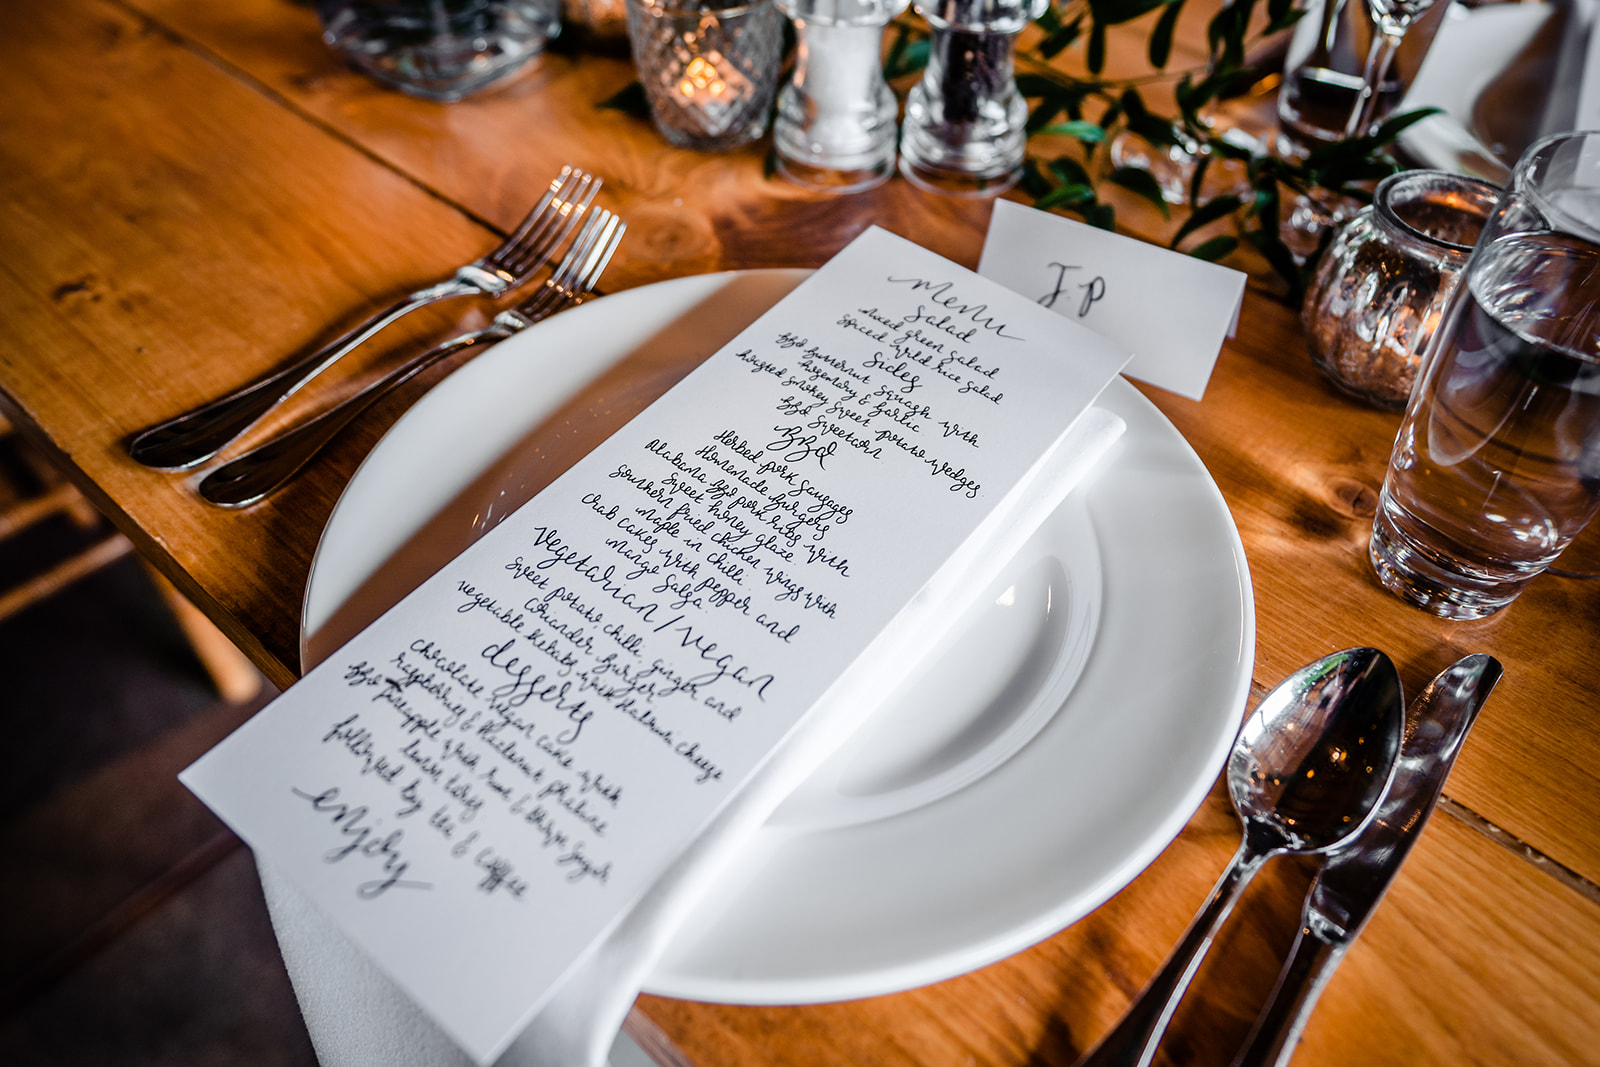 menu
Salad
mixed green salad
spiced wild rice salad
Sides
BBQ Butternut squash with
Rosemary & Garlic.
Roasted smokey sweet potato wedges.
BBQ Sweetcorn
BBQ
Herbed pork sausages
Homemade Burgers
Alabama BBQ pork ribs with
sweet honey glaze.
Southern fried chicken wings with
maple in chilli.
Crab cakes with pepper and
mango salsa.
Vegetarian / vegan
Sweet potato, chilli, ginger and
coriander Burger
vegetable Kebabs with Halloumi cheese
desserts
chocolate vegan cake with
raspberries & Hazlenut praline
BBQ Pineapple with rum & sugar
followed by tea & coffee
enjoy
J.P